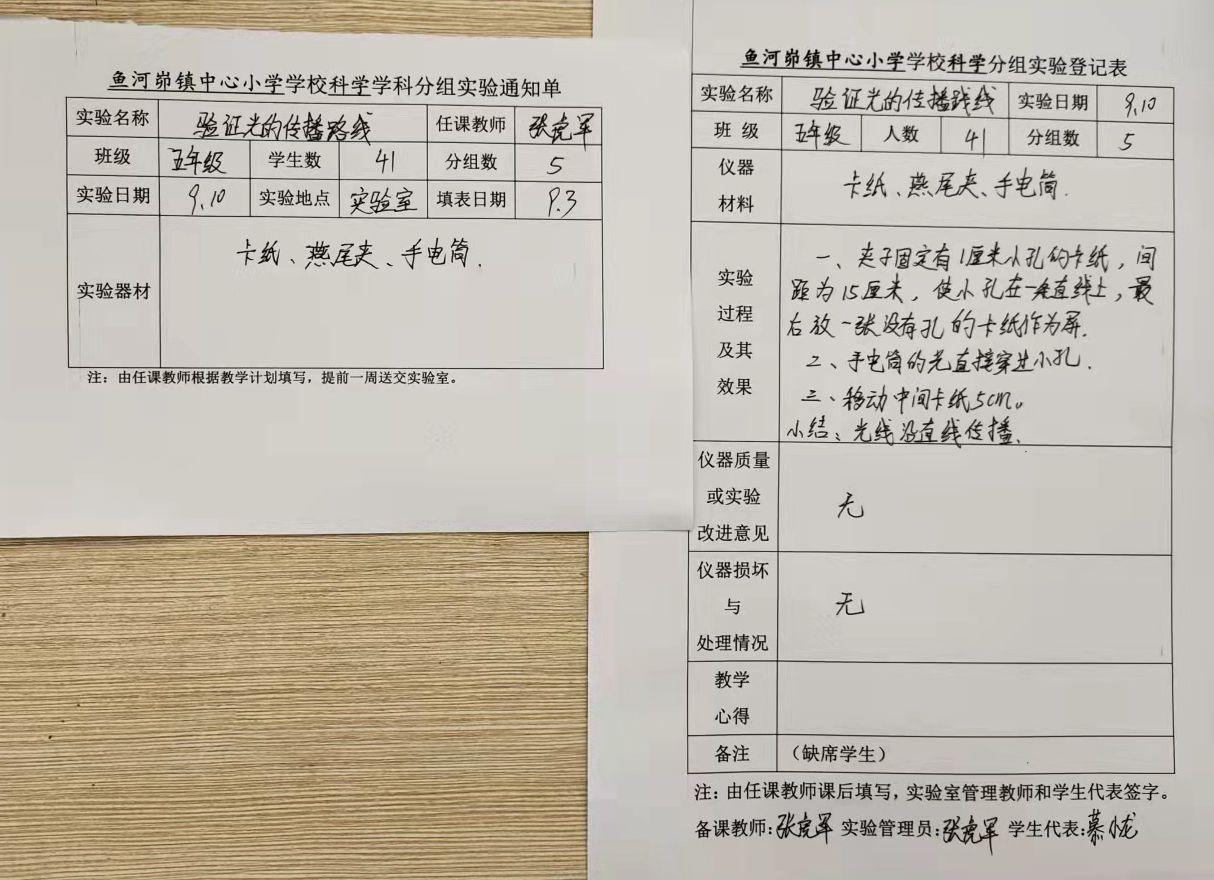 鱼河峁镇中心小学学校科学学科分组实验通知单
实验名称 验证光的传播路线 任课教师 张虎军
班级 五年级 学生数 41 分组数 5
实验日期 9.10 实验地点 实验室 填表日期 9.3
实验器材 卡纸、燕尾夹、手电筒.
注：由任课教师根据教学计划填写，提前一周送交实验室。
鱼河峁镇中心小学学校科学分组实验登记表
实验名称 验证光的传播路线 实验日期 9.10
班 级 五年级 人数 41 分组数 5
仪器
材料
卡纸、燕尾夹、手电筒.
实验
过程
及其
效果
一、夹子固定有1厘米小孔的卡纸，间
距为15厘米，使小孔在一条直线上，最
后放一张没有孔的卡纸作为屏.
二、手电筒的光直接穿过小孔.
三、移动中间卡纸5cm。
小结：光线沿直线传播.
仪器质量
或实验
改进意见
无
仪器损坏
与
处理情况
无
教学
心得
备注 （缺席学生）
注：由任课教师课后填写，实验室管理教师和学生代表签字。
备课教师:张虎军 实验管理员:张虎军 学生代表:慕